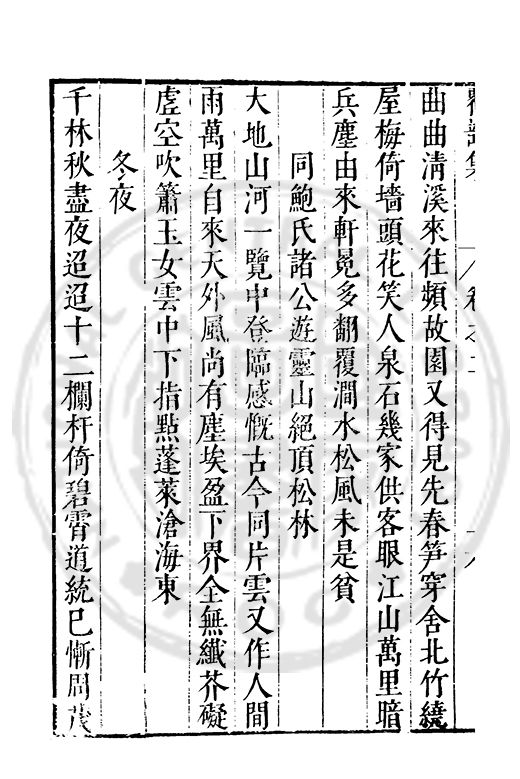 曲曲淸溪來往頻故園又得見先春笋穿舍北竹繞
屋梅倚墻頭花笑人泉石幾家供客眼江山萬里暗
兵塵由來軒冕多翻覆澗水松風未是貧
同鮑氏諸公遊靈山絕頂松林
大地山河一覽中登臨感慨古今同片雲又作人間
雨萬里自來天外風尚有塵埃盈下界全無纖芥礙
虛空吹簫玉女雲中下指點蓬萊滄海東
冬夜
千林秋盡夜迢迢十二欄杆倚碧霄道統已慚周茂